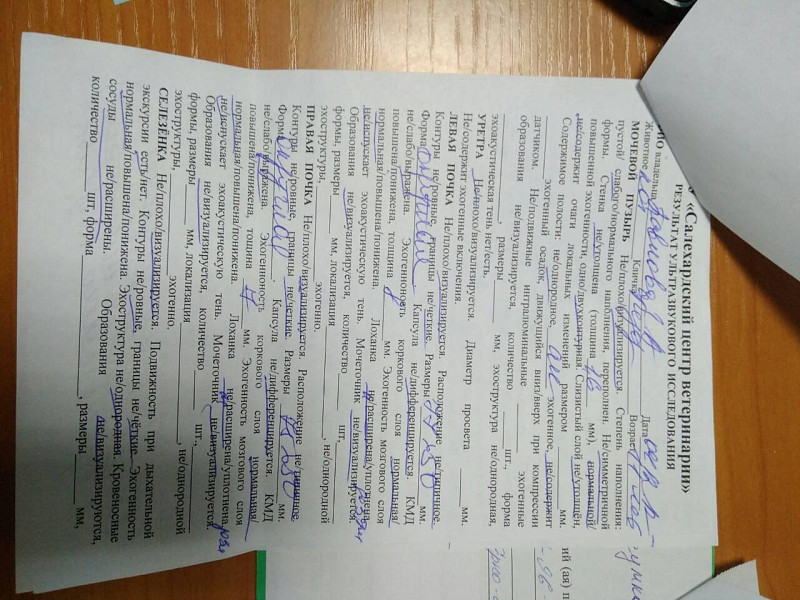 «Салехардский центр ветеринарии»
РЕЗУЛЬТАТ УЛЬТРАЗВУКОВОГО ИССЛЕДОВАНИЯ
ФИО владельца
Животное Кличка Возраст
МОЧЕВОЙ ПУЗЫРЬ Не/плохо/визуализируется. Степень наполнения:
пустой/ слабого/нормального наполнения, переполнен. Не/симметричной
формы. Стенка не/утолщена (толщина 1,6 мм), нормальной/
повышенной эхогенности, одно/двухконтурная. Слизистый слой не/утолщён,
не/содержит очаги локальных изменений размером мм.
Содержимое полости: не/однородное, эхогенное, не/содержит
эхогенный осадок, движущийся вниз/вверх при компрессии
датчиком. Не/подвижные интралюминальные эхогенные
образования не/визуализируется, количество шт., форма
, размеры мм, эхоструктура не/однородная,
эхоакустическая тень нет/есть.
УРЕТРА Не/плохо/визуализируется. Диаметр просвета мм.
Не/содержит эхогенные включения.
ЛЕВАЯ ПОЧКА Не/плохо/визуализируется. Расположение не/типичное.
Контуры не/ровные, границы не/чёткие. Размеры мм.
Форма Капсула не/дифференцируется. КМД
не/слабо/выражена. Эхогенность коркового слоя нормальная/
повышена/понижена, толщина 8 мм. Эхогенность мозгового слоя
нормальная/повышена/понижена. Лоханка не/расширена/уплотнена,
не/испускает эхоакустическую тень. Мочеточник не/визуализируется.
Образования не/визуализируется, количество шт.,
формы, размеры мм, локализация , не/однородной
эхоструктуры, эхогенно.
ПРАВАЯ ПОЧКА Не/плохо/визуализируется. Расположение не/типичное.
Контуры не/ровные, границы не/чёткие. Размеры мм.
Форма . Капсула не/дифференцируется. КМД
не/слабо/выражена. Эхогенность коркового слоя нормальная/
повышена/понижена, тощина 7 мм. Эхогенность мозгового слоя
нормальная/повышена/понижена. Лоханка не/расширена/уплотнена,
не/испускает эхоакустическую тень. Мочеточник не/визуализируется.
Образования не/визуализируется, количество шт.,
формы, размеры мм, локализация , не/однородной
эхоструктуры, эхогенно.
СЕЛЕЗЁНКА Не/плохо/визуализируется. Подвижность при дыхательной
экскурсии есть/нет. Контуры не/ровные, границы не/чёткие. Эхогенность
нормальная/повышена/понижена. Эхоструктура не/однородная. Кровеносные
сосуды не/расширены. Образования не/визуализируются,
количество шт, форма , размеры мм,